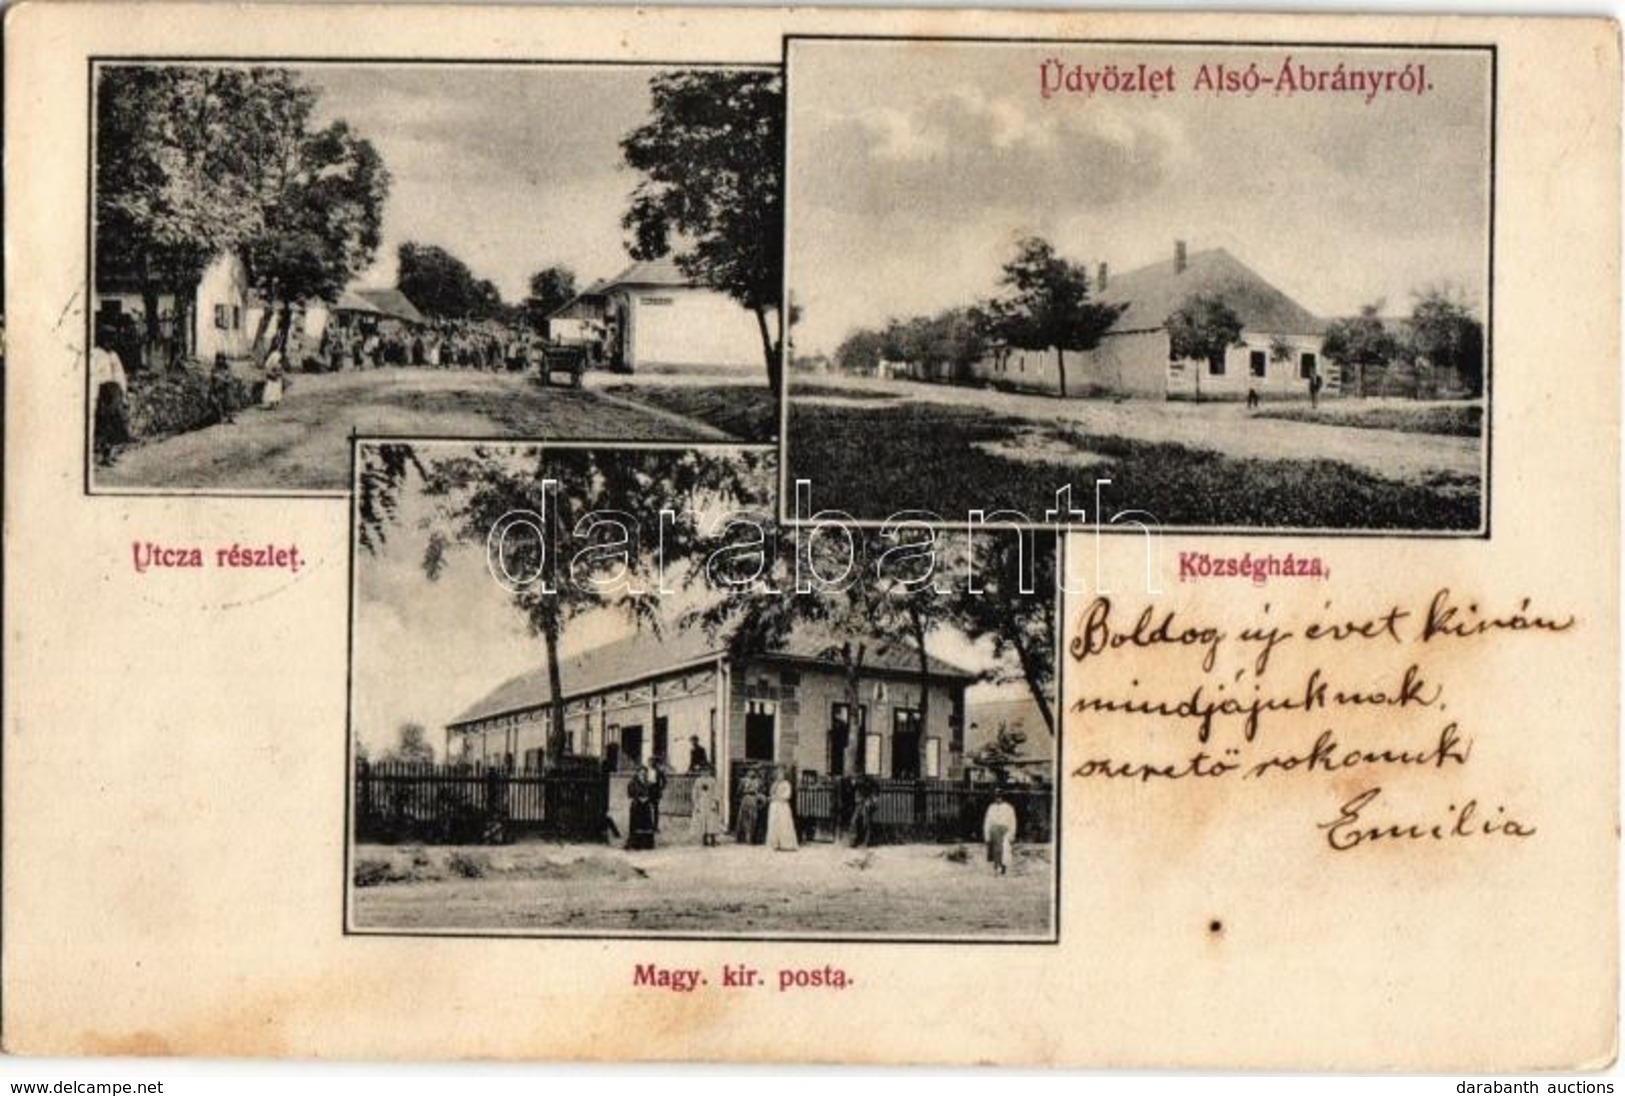 Üdvözlet Alsó-Ábrányról.
Utcza részlet.
Községháza,
darabanth
Boldog új évet kiván
mindjájuknak.
szerető rokonuk
Emilia
Magy. kir. posta.
delcampe.net
darabanth auctions